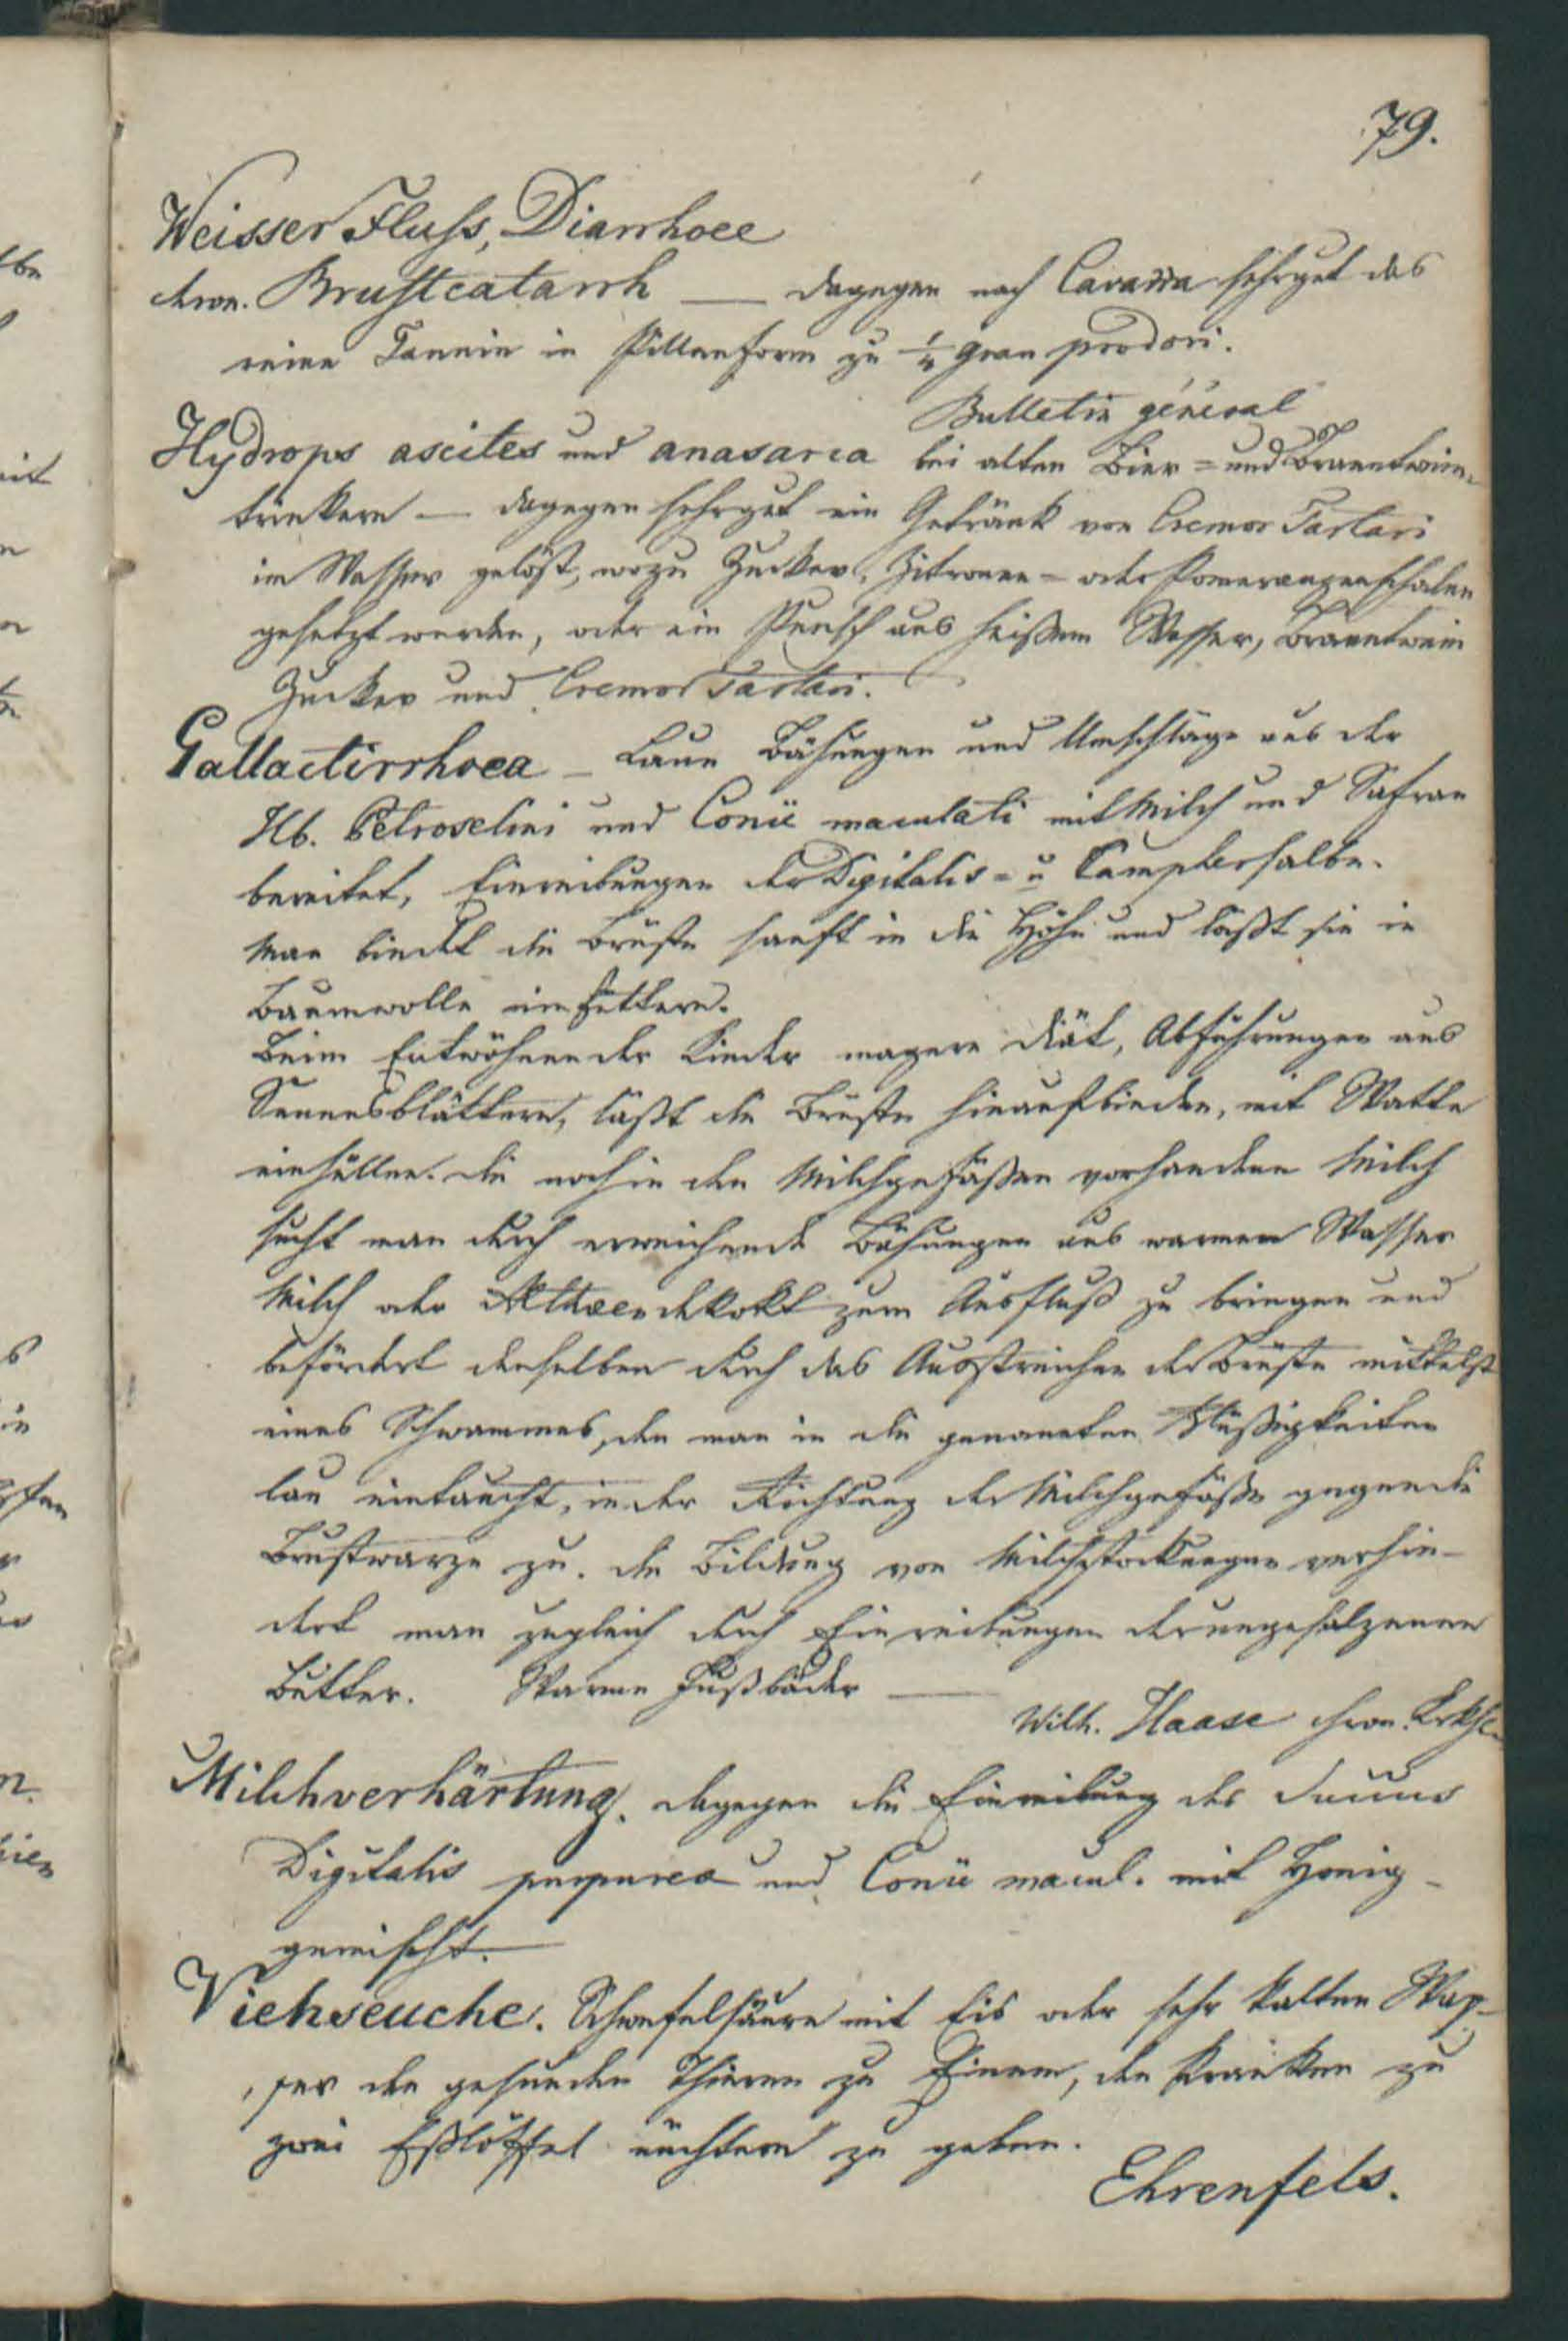 79.
Weisser Fluss, Diarrhoee
chron. Brustcatarrh — dagegen nach Cavarra sehr gut das
reine Tannin in Pillenform zu ¼ Gran pro dosi.
Bulletin général
Hydrops ascites und anasarca bei alten Bier= und Branntwein-
trinkern — dagegen sehr gut ein Getränk von Cremor Tartari
im Wasser gelöst, wozu Zucker, Zitronen= oder Pomeranzenschalen
gesetzt werden, oder ein Punsch aus heißem Wasser, Branntwein
Zucker und Cremor Tartari.
Gallactirrhoea — Laue Bähungen und Umschläge aus der
Hb. Petroselini und Conii maculati mit Milch und Safran
bereitet, Einreibungen der Digitalis= u Camphersalbe.
Man bindet die Brüste sanft in die Höhe und läßt sie in
Baumwolle einfüttern.
Beim Entwöhnen der Kinder magere Diät, Abführungen aus
Sennesblättern, läßt die Brüste hinaufbinden, mit Watte
einhüllen. die noch in den Milchgefäßen vorhandene Milch
sucht man durch erweichende Bähungen aus warmen Wasser
Milch oder Altheendekokt zum Ausfluß zu bringen und
befördert denselben durch das Ausstreichen der Brüste mittelst
eines Schwammes, den man in die genannten Flüßigkeiten
lau eintaucht, in der Richtung der Milchgefäße gegen die
Brustwarze zu. die Bildung von Milchstockungen verhin-
dert man zugleich durch Einreibungen der ungesalzenen
Butter. Warme Fußbäder —
Wilh. Haase chron. Krkh.
Milchverhärtung. dagegen die Einreibung des Succus
Digitalis purpurea und Conii macul. mit Honig
gemischt. —
Viehseuche. Schwefelsäure mit Eis oder sehr kalten Was-
ser den gesunden Thieren zu Einem, den Kranken zu
zwei Eßlöffel nüchtern zu geben.
Ehrenfels.